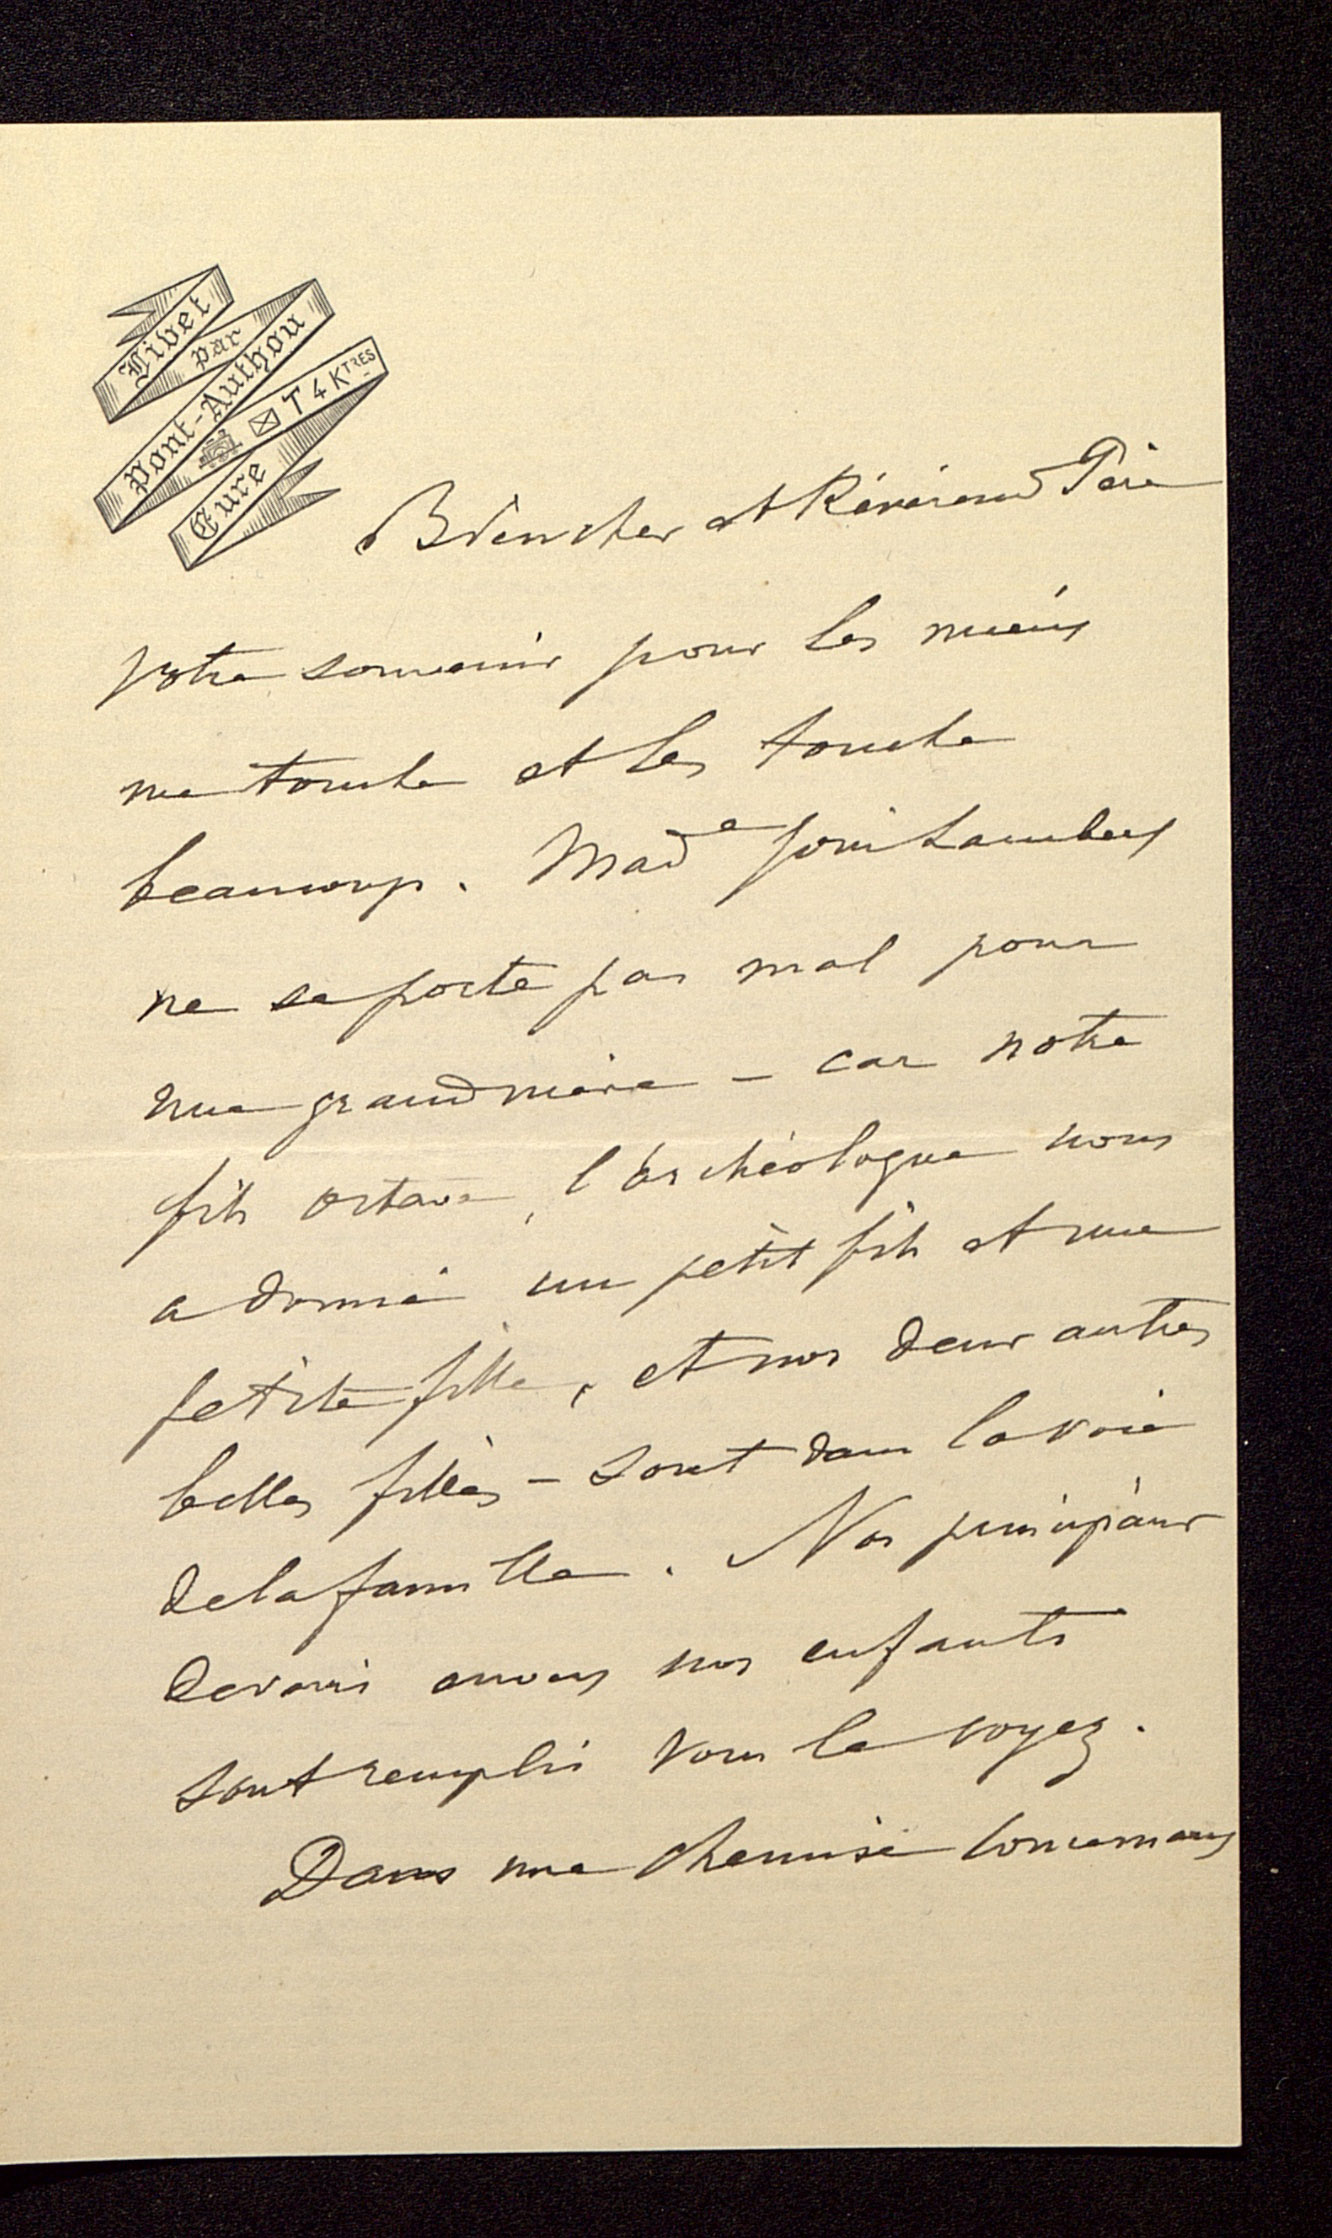 Livet
par
Pont-Authou
T 4 KTRES
Eure
Bien cher et Révérend Père
Votre souvenir pour les miens
me touche et les touche
beaucoup. Made Join Lambert
ne se porte pas mal pour
une grand mère – car notre
fils octave, l'archéologue nous
a donné un petit fils et une
petite fille, et nos deux autres
belles filles – sont dans la voie
de la famille. Nos principaux
devoirs envers nos enfants
sont remplis vous le voyez.
Dans une chemise concernant